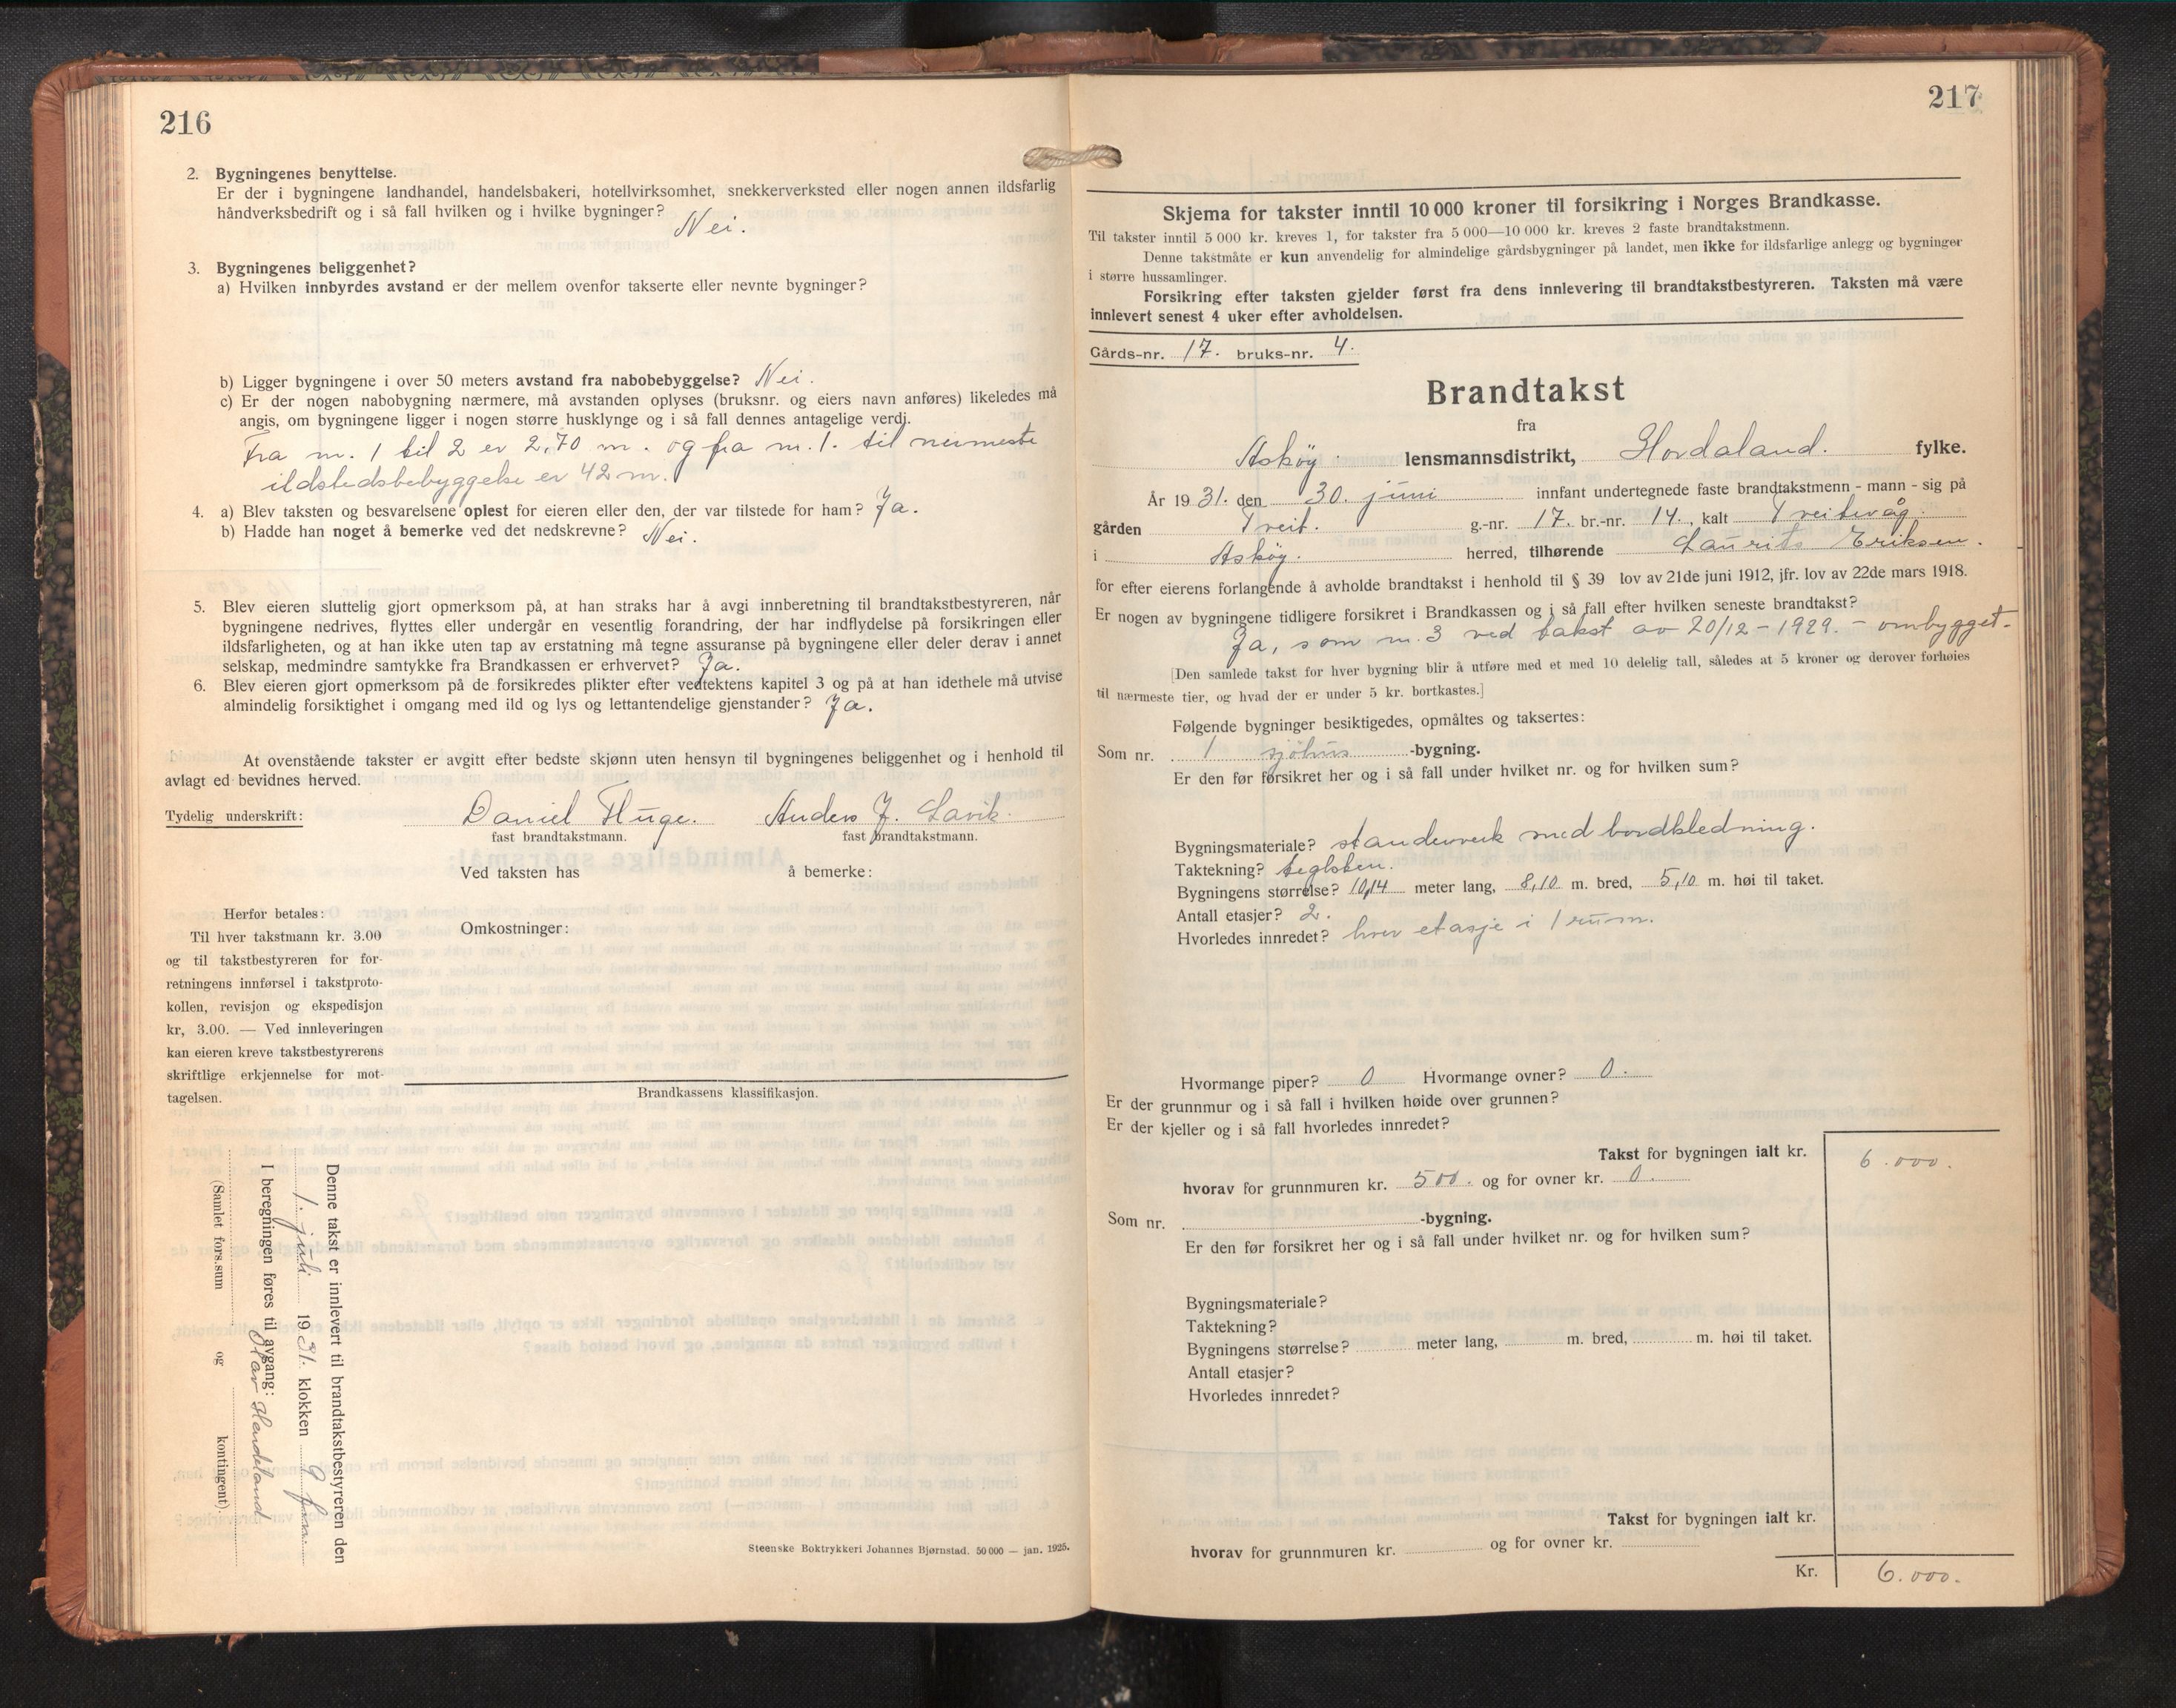 216
2. Bygningenes benyttelse.
Er der i bygningene landhandel, handelsbakeri, hotellvirksomhet, snekkerverksted eller nogen annen ildsfarlig
håndverksbedrift og i så fall hvilken og i hvilke bygninger?
Nei.
3. Bygningenes beliggenhet?
a) Hvilken innbyrdes avstand er der mellem ovenfor takserte eller nevnte bygninger?
b) Ligger bygningene i over 50 meters avstand fra nabobebyggelse? Nei.
c) Er der nogen nabobygning nærmere, må avstanden oplyses (bruksnr. og eiers navn anføres) likeledes må
angis, om bygningene ligger i nogen større husklynge og i så fall dennes antagelige verdi.
Fra nr. 1 til 2 er 2,70 m. og fra nr. 1. til nærmeste
ildstedsbebyggelse er 42 m.
4. a) Blev taksten og besvarelsene oplest for eieren eller den, der var tilstede for ham? Ja.
b) Hadde han noget å bemerke ved det nedskrevne? Nei.
5. Blev eieren sluttelig gjort opmerksom på, at han straks har å avgi innberetning til brandtakstbestyreren, når
bygningene nedrives, flyttes eller undergår en vesentlig forandring, der har indflydelse på forsikringen eller
ildsfarligheten, og at han ikke uten tap av erstatning må tegne assuranse på bygningene eller deler derav i annet
selskap, medmindre samtykke fra Brandkassen er erhvervet? Ja.
6. Blev eieren gjort opmerksom på de forsikredes plikter efter vedtektens kapitel 3 og på at han idethele må utvise
almindelig forsiktighet i omgang med ild og lys og lettantendelige gjenstander? Ja.
At ovenstående takster er avgitt efter bedste skjønn uten hensyn til bygningenes beliggenhet og i henhold til
avlagt ed bevidnes herved.
Tydelig underskrift: Daniel Fluge. Anders J. Lavik.
fast brandtakstmann. fast brandtakstmann.
Ved taksten has å bemerke:
Herfor betales:
Til hver takstmann kr. 3.00
og til takstbestyreren for for-
retningens innførsel i takstproto-
kollen, revisjon og ekspedisjon
kr, 3.00. — Ved innleveringen
kan eieren kreve takstbestyrerens
skriftlige erkjennelse for mot-
tagelsen.
Omkostninger:
Brandkassens klassifikasjon.
Denne takst er innlevert til brandtakstbestyreren den
1. juli 1931. klokken 9 fm.
I beregningen føres til avgang:
Olav Handeland
(Samlet fors.sum og kontingent)
Steenske Boktrykkeri Johannes Bjørnstad. 50 000 — jan. 1925.
217
Skjema for takster inntil 10 000 kroner til forsikring i Norges Brandkasse.
Til takster inntil 5 000 kr. kreves 1, for takster fra 5 000—10 000 kr. kreves 2 faste brandtakstmenn.
Denne takstmåte er kun anvendelig for almindelige gårdsbygninger på landet, men ikke for ildsfarlige anlegg og bygninger
i større hussamlinger.
Forsikring efter taksten gjelder først fra dens innlevering til brandtakstbestyreren. Taksten må være
innlevert senest 4 uker efter avholdelsen.
Gårds-nr. 17. bruks-nr. 4.
Brandtakst
fra
Askøy lensmannsdistrikt, Hordaland. fylke.
År 1931. den 30. juni innfant undertegnede faste brandtakstmenn - mann - sig på
gården Treit. g.-nr. 17. br.-nr. 14., kalt Treitevåg.
i Askøy. herred, tilhørende Laurits Eriksen.
for efter eierens forlangende å avholde brandtakst i henhold til § 39 lov av 21de juni 1912, jfr. lov av 22de mars 1918.
Er nogen av bygningene tidligere forsikret i Brandkassen og i så fall efter hvilken seneste brandtakst?
Ja, som nr. 3 ved takst av 20/12-1929. - ombygget.
[Den samlede takst for hver bygning blir å utføre med et med 10 delelig tall, således at 5 kroner og derover forhøies
til nærmeste tier, og hvad der er under 5 kr. bortkastes.]
Følgende bygninger besiktigedes, opmåltes og taksertes:
Som nr. 1 sjøhus -bygning.
Er den før forsikret her og i så fall under hvilket nr. og for hvilken sum?
Bygningsmateriale? standerverk med bordkledning.
Taktekning? teglsten.
Bygningens størrelse? 10,14 meter lang, 8,10 m. bred, 5,10 m. høi til taket.
Antall etasjer? 2.
Hvorledes innredet? hver etasje i 1 rum.
Hvormange piper? 0 Hvormange ovner? 0.
Er der grunnmur og i så fall i hvilken høide over grunnen?
Er der kjeller og i så fall hvorledes innredet?
Takst for bygningen ialt kr. 6.000.
hvorav for grunnmuren kr. 500. og for ovner kr. 0.
Som nr. -bygning.
Er den før forsikret her og i så fall under hvilket nr. og for hvilken sum?
Bygningsmateriale?
Taktekning?
Bygningens størrelse? meter lang, m. bred, m. høi til taket.
Antall etasjer?
Hvorledes innredet?
Takst for bygningen ialt kr.
hvorav for grunnmuren kr. og for ovner kr.
Kr. 6.000.